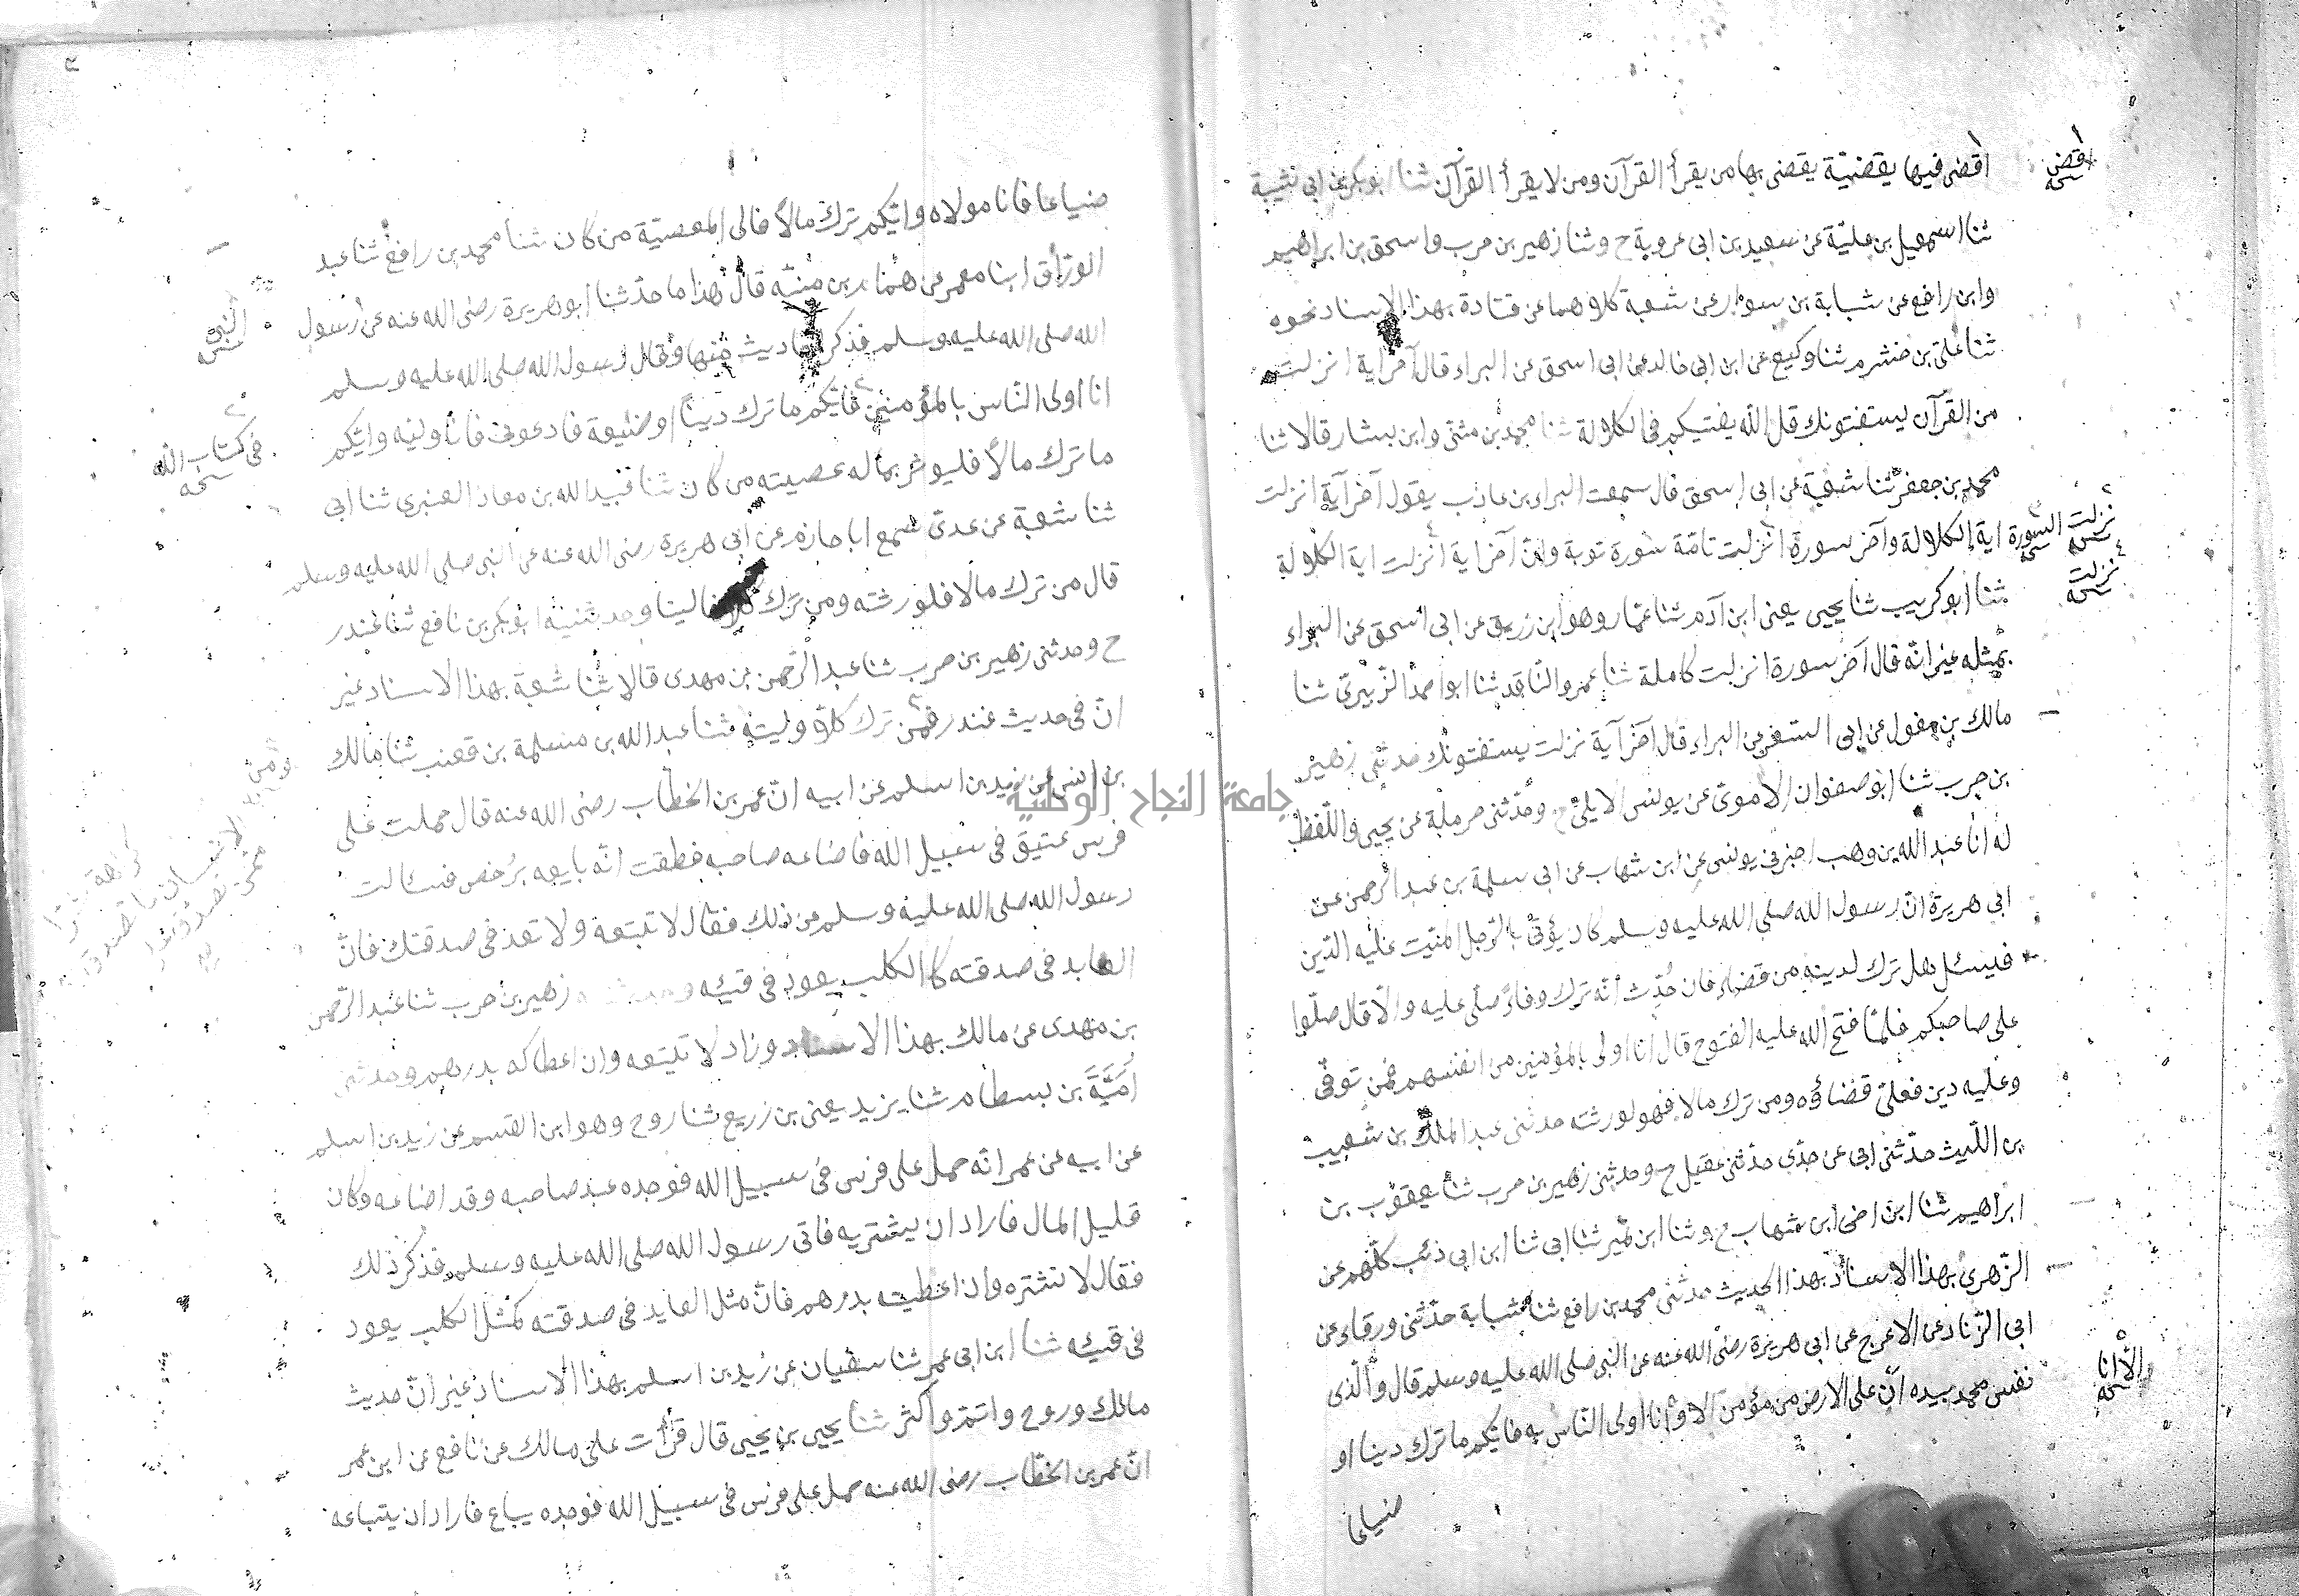 اقضى فيها بقضية يقضى بها من يقرأ القرآن ومن لا يقرأ القرآن ثنا ابو بكر بن ابى شيبة
ثنا اسمعيل بن علية عن سعيد بن ابى عروبة ح وثنا زهير بن حرب واسحق بن ابراهيم
وابن رافع عن شبابة بن سوار عن شعبة كلاهما عن قتادة بهذا الاسناد نحوه
ثنا على بن خشرم ثنا وكيع عن ابن ابى خالد عن ابى اسحق عن البراء قال آخر اية انزلت
من القرآن يستفتونك قل الله يفتيكم فى الكلالة ثنا محمد بن مثنى وابن بشار قالا ثنا
محمد بن جعفر ثنا شعبة عن ابى اسحق قال سمعت البراء بن عازب يقول آخر آية انزلت
اية الكلالة وآخر سورة انزلت تامّة سورة توبة وانّ آخر اية انزلت اية الكلالة
ثنا ابو كريب ثنا يحيى يعنى ابن آدم ثنا عمّار وهو ابن زريق عن ابى اسحق عن البراء
بمثله غير انّه قال آخر سورة انزلت كاملة ثنا عمرو النّاقد ثنا ابو احمد الزّبيرىّ ثنا
مالك بن مغول عن ابى السفر عن البراء قال آخر آية نزلت يستفتونك حدثنى زهير
بن حرب ثنا ابو صفوان الاموىّ عن يونس الايلىّ ح وحدّثنى حرملة عن يحيى واللّفظ
له انا عبد الله بن وهب اخبرنى يونس عن ابن شهاب عن ابى سلمة بن عبد الرّحمن عن
ابى هريرة انّ رسول الله صلى الله عليه وسلم كان يؤتى بالرّجل الميّت عليه الدّين
فيسئل هل ترك لدينه من قضاء فان حُدّث انّه ترك وفاءً صلّى عليه والّا قال صلّوا
على صاحبكم فلمّا فتح الله عليه الفتوح قال انا اولى بالمؤمنين من انفسهم فمن توفّى
وعليه دين فعلىّ قضاؤه ومن ترك مالا فهو لورثته حدثنى عبد الملك بن شعيب
بن اللّيث حدّثنى ابى عن جدّى حدّثنى عقيل ح وحدثنى زهير بن حرب ثنا يعقوب بن
ابراهيم ثنا ابن اخى ابن شهاب ح وثنا ابن نمير ثنا ابى ثنا ابن ابى ذئب كلّهم عن
الزّهرى بهذا الاسناد بهذا الحديث حدثنى محمد بن رافع ثنا شبابة حدّثنى ورقاء عن
ابى الزّناد عن الاعرج عن ابى هريرة رضى الله عنه عن النبى صلى الله عليه وسلم قال والّذى
نفس محمد بيده انّ على الارض من مؤمن الا وانا اولى النّاس به فايّكم ما ترك دينا او
ضياعا
اقض
نسخه
نزلت
نسخه
السورة
نسخه
نزلت
نسخه
الّا انا
نسخه
ضياعا فانا مولاه وايّكم ترك مالاً فالى العصبة من كان ثنا محمد بن رافع ثنا عبد
الورّاق انبا معمر عن همّام بن منبّه قال هذا ما حدّثنا ابو هريرة رضى الله عنه عن رسول
الله صلى الله عليه وسلم فذكر احاديث منها وقال رسول الله صلى الله عليه وسلم
انا اولى النّاس بالمؤمنين فايّكم ما ترك ديناً او ضيعة فادعونى فانا وليّه وايّكم
ما ترك مالاً فليوثر بماله عصبته من كان ثنا عبيد الله بن معاذ العنبرى ثنا ابى
ثنا شعبة عن عدىّ سمع ابا حازم عن ابى هريرة رضى الله عنه عن النبى صلى الله عليه وسلم
قال من ترك مالا فلورثته ومن ترك كلا فالينا وحدثنيه ابو بكر بن نافع ثنا غندر
ح وحدثنى زهير بن حرب ثنا عبد الرّحمن بن مهدى قالا ثنا شعبة بهذا الاسناد غير
انّ فى حديث غندر فمن ترك كلّا وليته ثنا عبد الله بن مسلمة بن قعنب ثنا مالك
بن انس عن زيد بن اسلم عن ابيه انّ عمر بن الخطّاب رضى الله عنه قال حملت على
فرس عتيق فى سبيل الله فاضاعه صاحبه فظننت انّه بايعه برُخص فسئالت
رسول الله صلى الله عليه وسلم عن ذلك فقال لا تبتعه ولا تعد فى صدقتك فانّ
العايد فى صدقته كالكلب يعود فى قيئه وحدثنيه زهير بن حرب ثنا عبد الرّحمن
بن مهدى عن مالك بهذا الاسناد وزاد لا تبتعه وان اعطاكه بدرهم وحدثنى
اُمَيَّةَ بن بسطام ثنا يزيد يعنى بن زريع ثنا روح وهو ابن القسم عن زيد بن اسلم
عن ابيه عن عمر انّه حمل على فرس فى سبيل الله فوجده عند صاحبه وقد اضاعه وكان
قليل المال فاراد ان يشتريه فاتى رسول الله صلى الله عليه وسلم فذكر ذلك
فقال لا تشتره وان اعطيته بدرهم فانّ مثل العايد فى صدقته كمثل الكلب يعود
فى قيئه ثنا ابن ابى عمر ثنا سفيان عن زيد بن اسلم بهذا الاسناد غير انّ حديث
مالك وروح واتمّ واكثر ثنا يحيى بن يحيى قال قرأت على مالك عن نافع عن ابن عمر
انّ عمر بن الخطّاب رضى الله عنه حمل على فرس فى سبيل الله فوجده يباع فاراد ان يبتاعه
النبى
نسخه
فى كتاب الله
نسخه
ومن
جامعة النجاح الوطنية